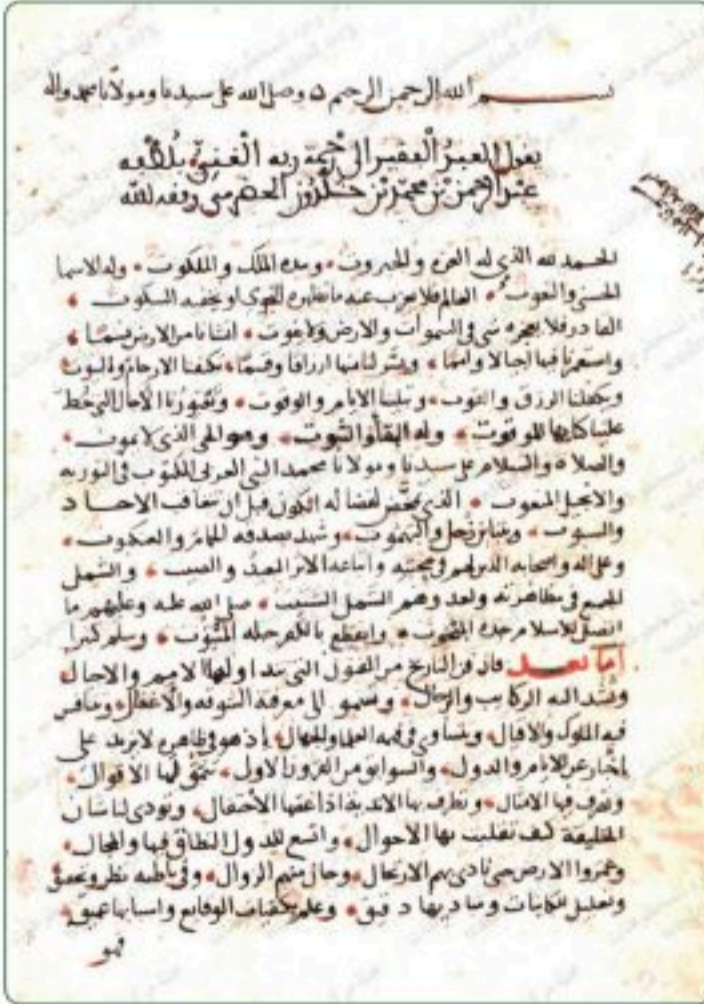 بسم الله الرحمن الرحيم وصلى الله على سيدنا ومولانا محمد واله
يقول العبد الفقير الى رحمة ربه الغني بلطفه
عبد الرحمن بن محمد بن خلدون الحضرمي وفقه الله
الحمد لله الذي له العزة والجبروت وبيده الملك والملكوت وله الاسما
الحسنى والنعوت العالم فلا يعزب عنه ما تظهره النجوى او يخفيه السكوت
القادر فلا يعجزه شي في السموات والارض ولا يفوت انشانا من الارض نسما
واستعمرنا فيها اجيالا وامما ويسر لنا منها ارزاقا وقسما تكنفنا الارحام والبيوت
ويكفلنا الرزق والقوت وتبلينا الايام والوقوت وتعتورنا الاجال التي خط
علينا كتابها الموقوت وله البقا والثبوت وهو الحي الذي لا يموت
والصلاة والسلام على سيدنا ومولانا محمد النبي العربي المكتوب في التورية
والانجيل المنعوت الذي تمخض لفصاله الكون قبل ان تتعاقب الاحاد
والسبوت ويتباين زحل واليهموت وشهد بصدقه الحمام والعنكبوت
وعلى اله واصحابه الذين لهم في محبته واتباعه الاثر البعيد والصيت والشمل
الجميع في مظاهرته ولعدوهم الشمل الشتيت صلى الله عليه وعليهم ما
اتصل بالاسلام جده المبخوت وانقطع بالكفر حبله المبتوت وسلم كثيرا
اما بعد فان فن التاريخ من الفنون التي تتداولها الامم والاجيال
وتشد اليه الركايب والرحال وتسمو الى معرفته السوقة والاغفال وتتنافس
فيه الملوك والاقيال ويتساوى في فهمه العلما والجهال إذ هو في ظاهره لا يزيد على
اخبار عن الايام والدول والسوابق من القرون الاول تنمو لها الاقوال
وتصرف فيها الامثال وتطرف بها الاندية اذا غصها الاحتفال وتودي لنا شان
الخليقة كيف تقلبت بها الاحوال واتسع للدول النطاق فيها والمجال
وعمروا الارض حتى نادى بهم الارتحال وحان منهم الزوال وفي باطنه نظر وتحقيق
وتعليل للكاينات ومباديها دقيق وعلم بكيفيات الوقايع واسبابها عميق
فهو